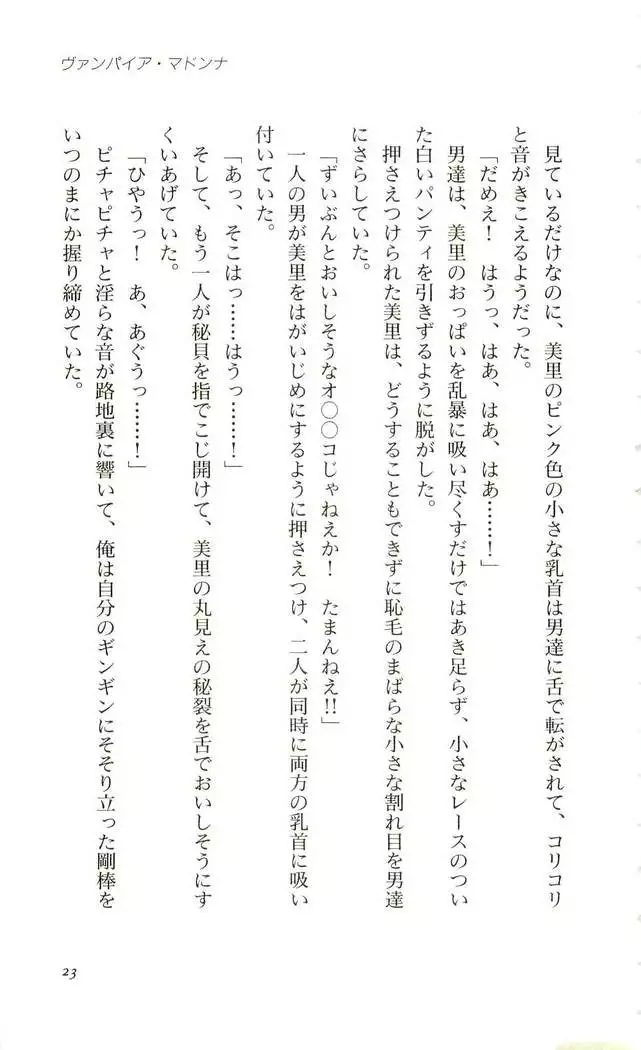 ヴァンパイア・マドンナ
見ているだけなのに、美里のピンク色の小さな乳首は男達に舌で転がされて、コリコリ
と音がきこえるようだった。
「だめえ！　はうっ、はあ、はあ、はあ……！」
男達は、美里のおっぱいを乱暴に吸い尽くすだけではあき足らず、小さなレースのつい
た白いパンティを引きずるように脱がした。
押さえつけられた美里は、どうすることもできずに恥毛のまばらな小さな割れ目を男達
にさらしていた。
「ずいぶんとおいしそうなオ○○コじゃねえか！　たまんねえ!!」
一人の男が美里をはがいじめにするように押さえつけ、二人が同時に両方の乳首に吸い
付いていた。
「あっ、そこはっ……はうっ……！」
そして、もう一人が秘貝を指でこじ開けて、美里の丸見えの秘裂を舌でおいしそうにす
くいあげていた。
「ひやうっ！　あ、あぐうっ……！」
ピチャピチャと淫らな音が路地裏に響いて、俺は自分のギンギンにそそり立った剛棒を
いつのまにか握り締めていた。
23